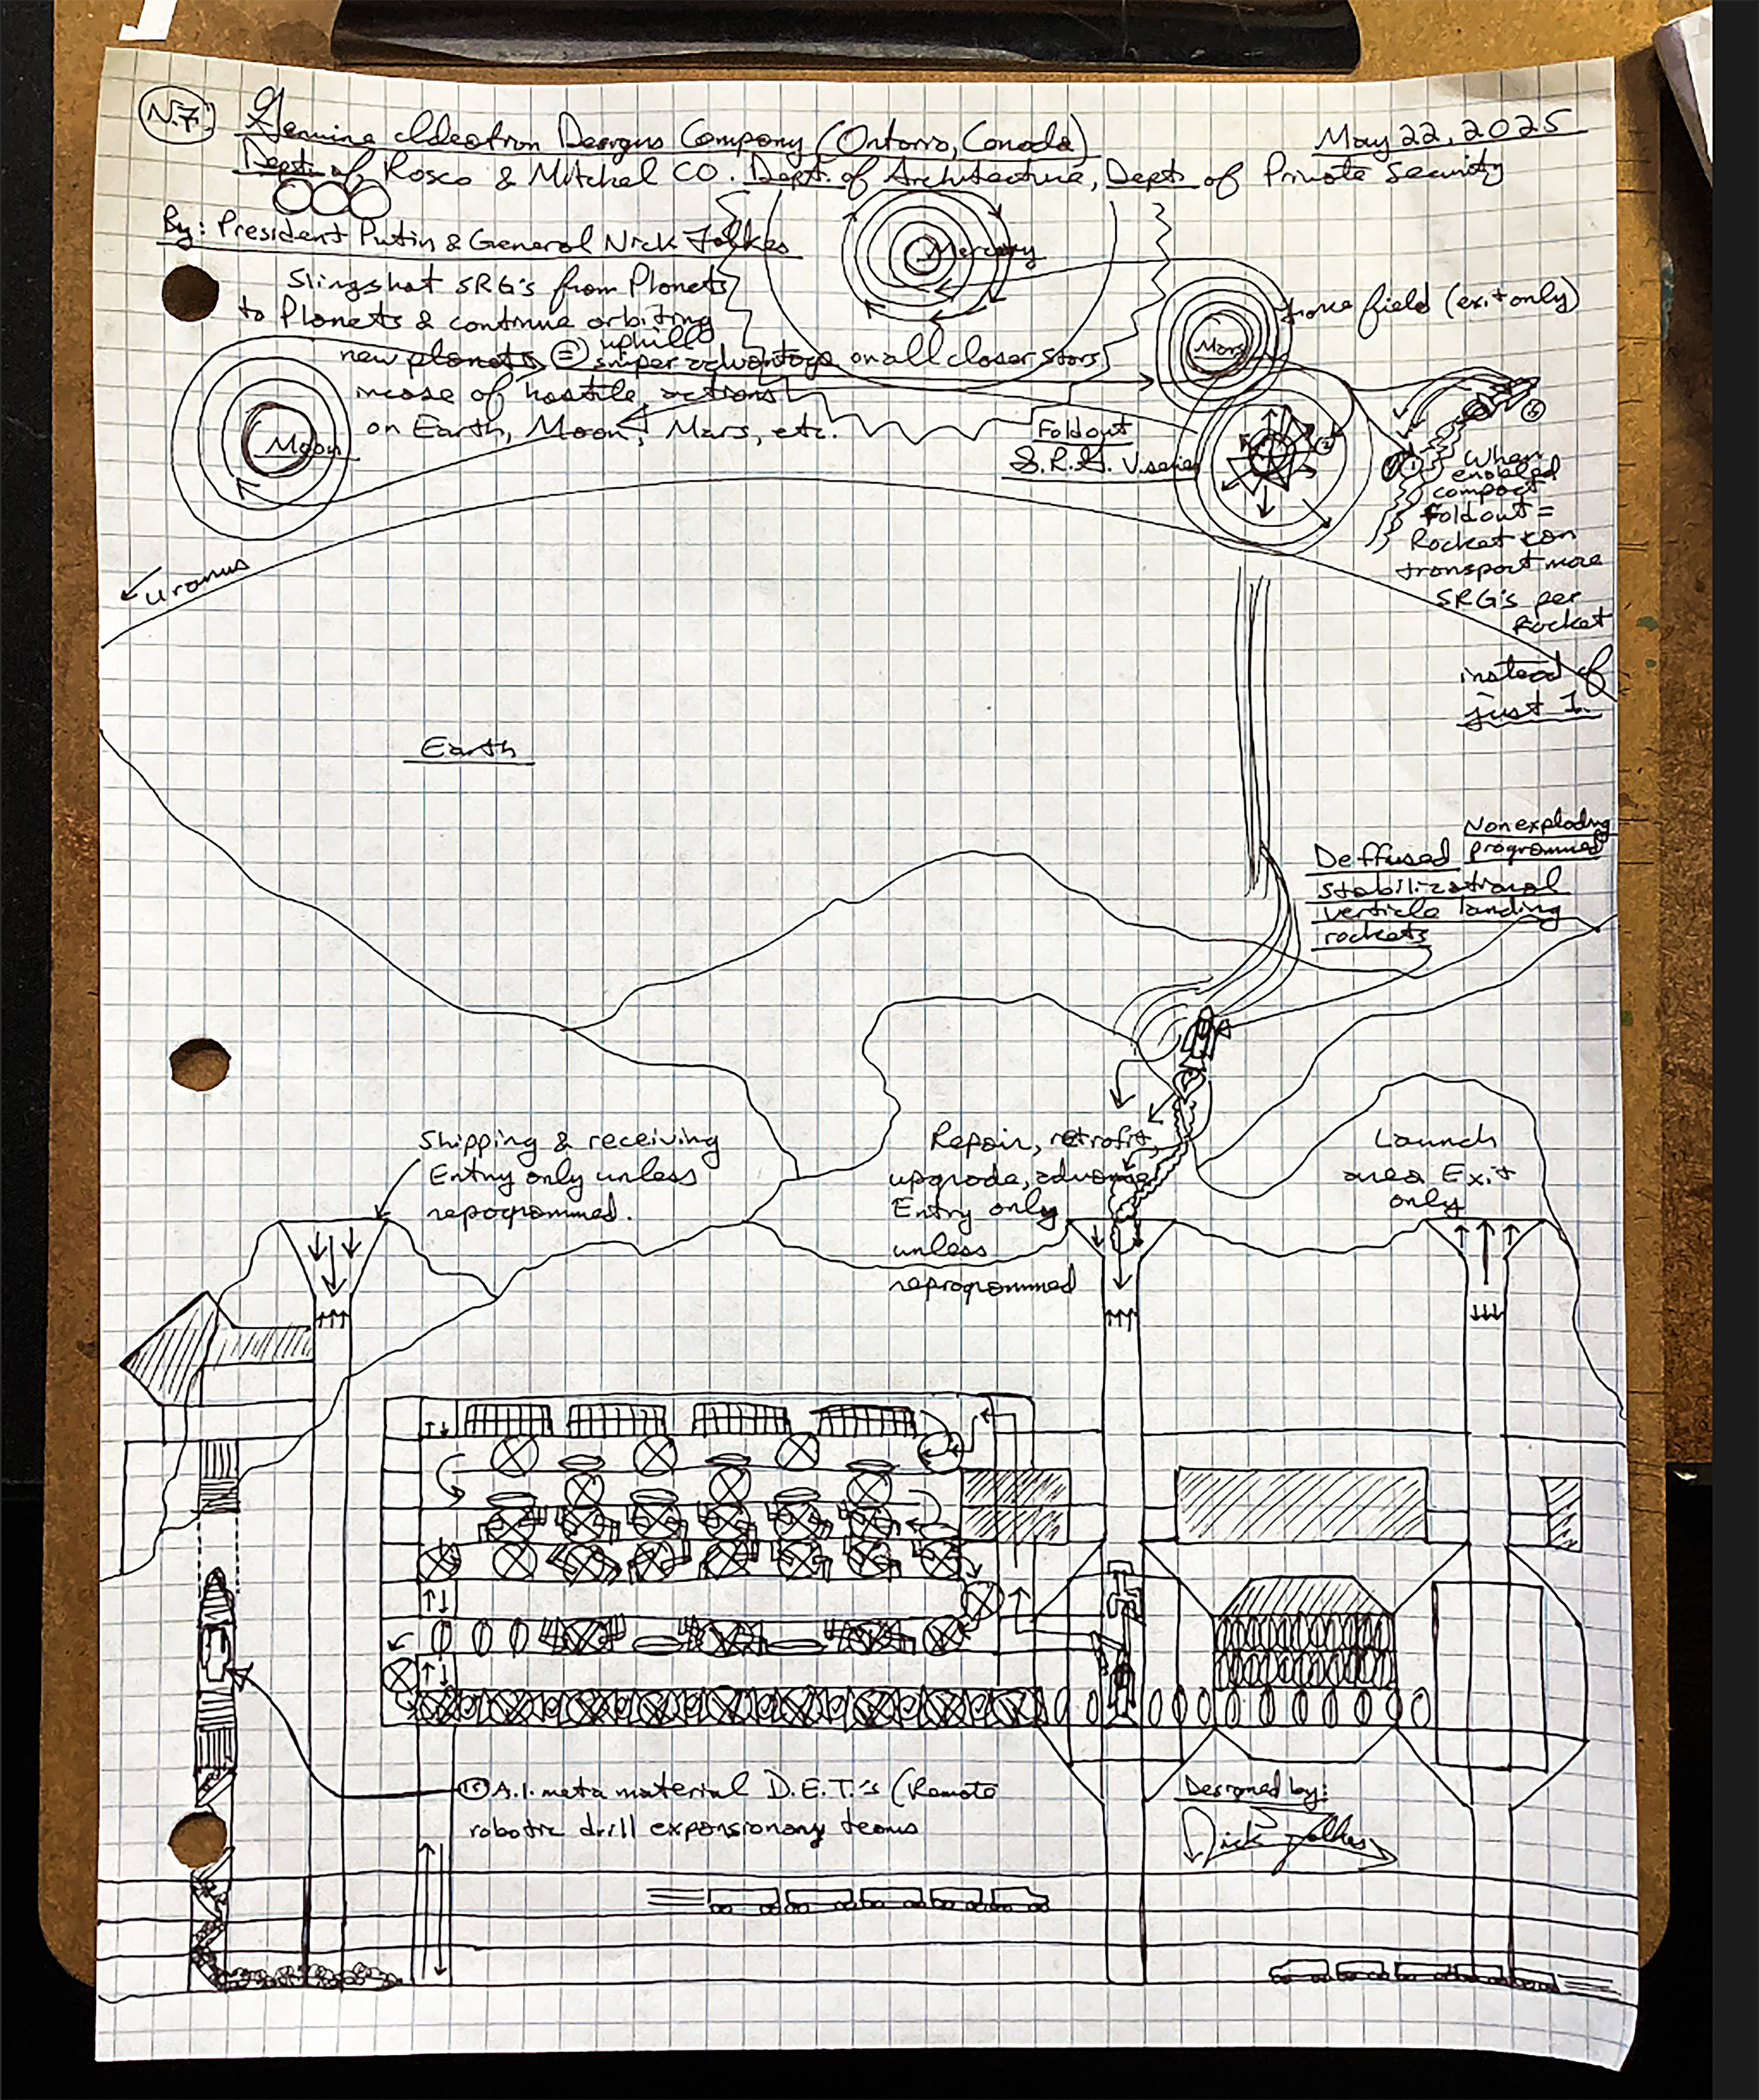 N.7.
Genuine Ideotron Designs Company (Ontario, Canada)
May 22, 2025
Dept. of, Rosco & Mitchel CO. Dept. of Architecture, Dept. of Private Security
By: President Putin & General Nick Folkes
Slingshot SRG's from Planets
to Planets & continue orbiting
uphill
new planets = sniper advantage on all closer stars
incase of hostile actions
on Earth, Moon, Mars, etc.
Mercury
Mars
force field (exit only)
Moon
Foldout
S.R.G. V.series
When
enabled
compact
foldout =
Rocket can
transport more
SRG's per
Rocket
instead of
just 1.
Uranus
Earth
Nonexploding
programmed
Deffused
stabilizational
verticle landing
rockets
Shipping & receiving
Entry only unless
repogrammed.
Repair, retrofit,
upgrade, advance
Entry only
unless
reprogrammed
Launch
area Exit
only
A.I. meta material D.E.T.'s (Remote
robotic drill expansionary teams
Designed by:
Nick Folkes